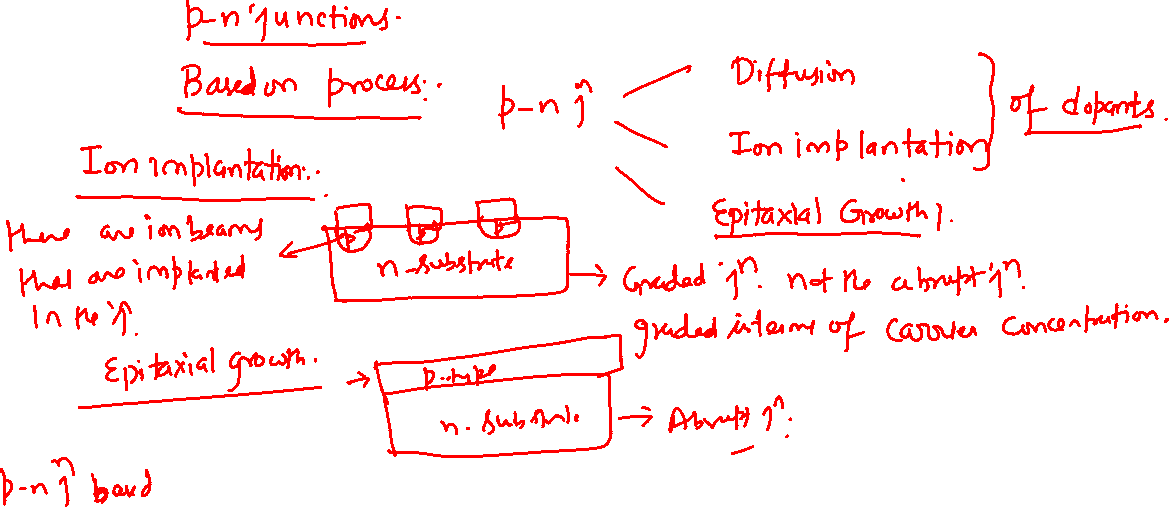 p-n junctions.
Based on process:.
p-n jⁿ
Diffusion
Ion implantation
of dopants.
Epitaxial Growth.
Ion implantation:.
there are ion beams
that are implanted
in the jⁿ.
p
p
p
n-substrate
Graded jⁿ. not the abrupt jⁿ.
graded interms of carrier concentration.
Epitaxial growth.
p-type
n-substrate
Abrupt jⁿ.
p-n jⁿ band